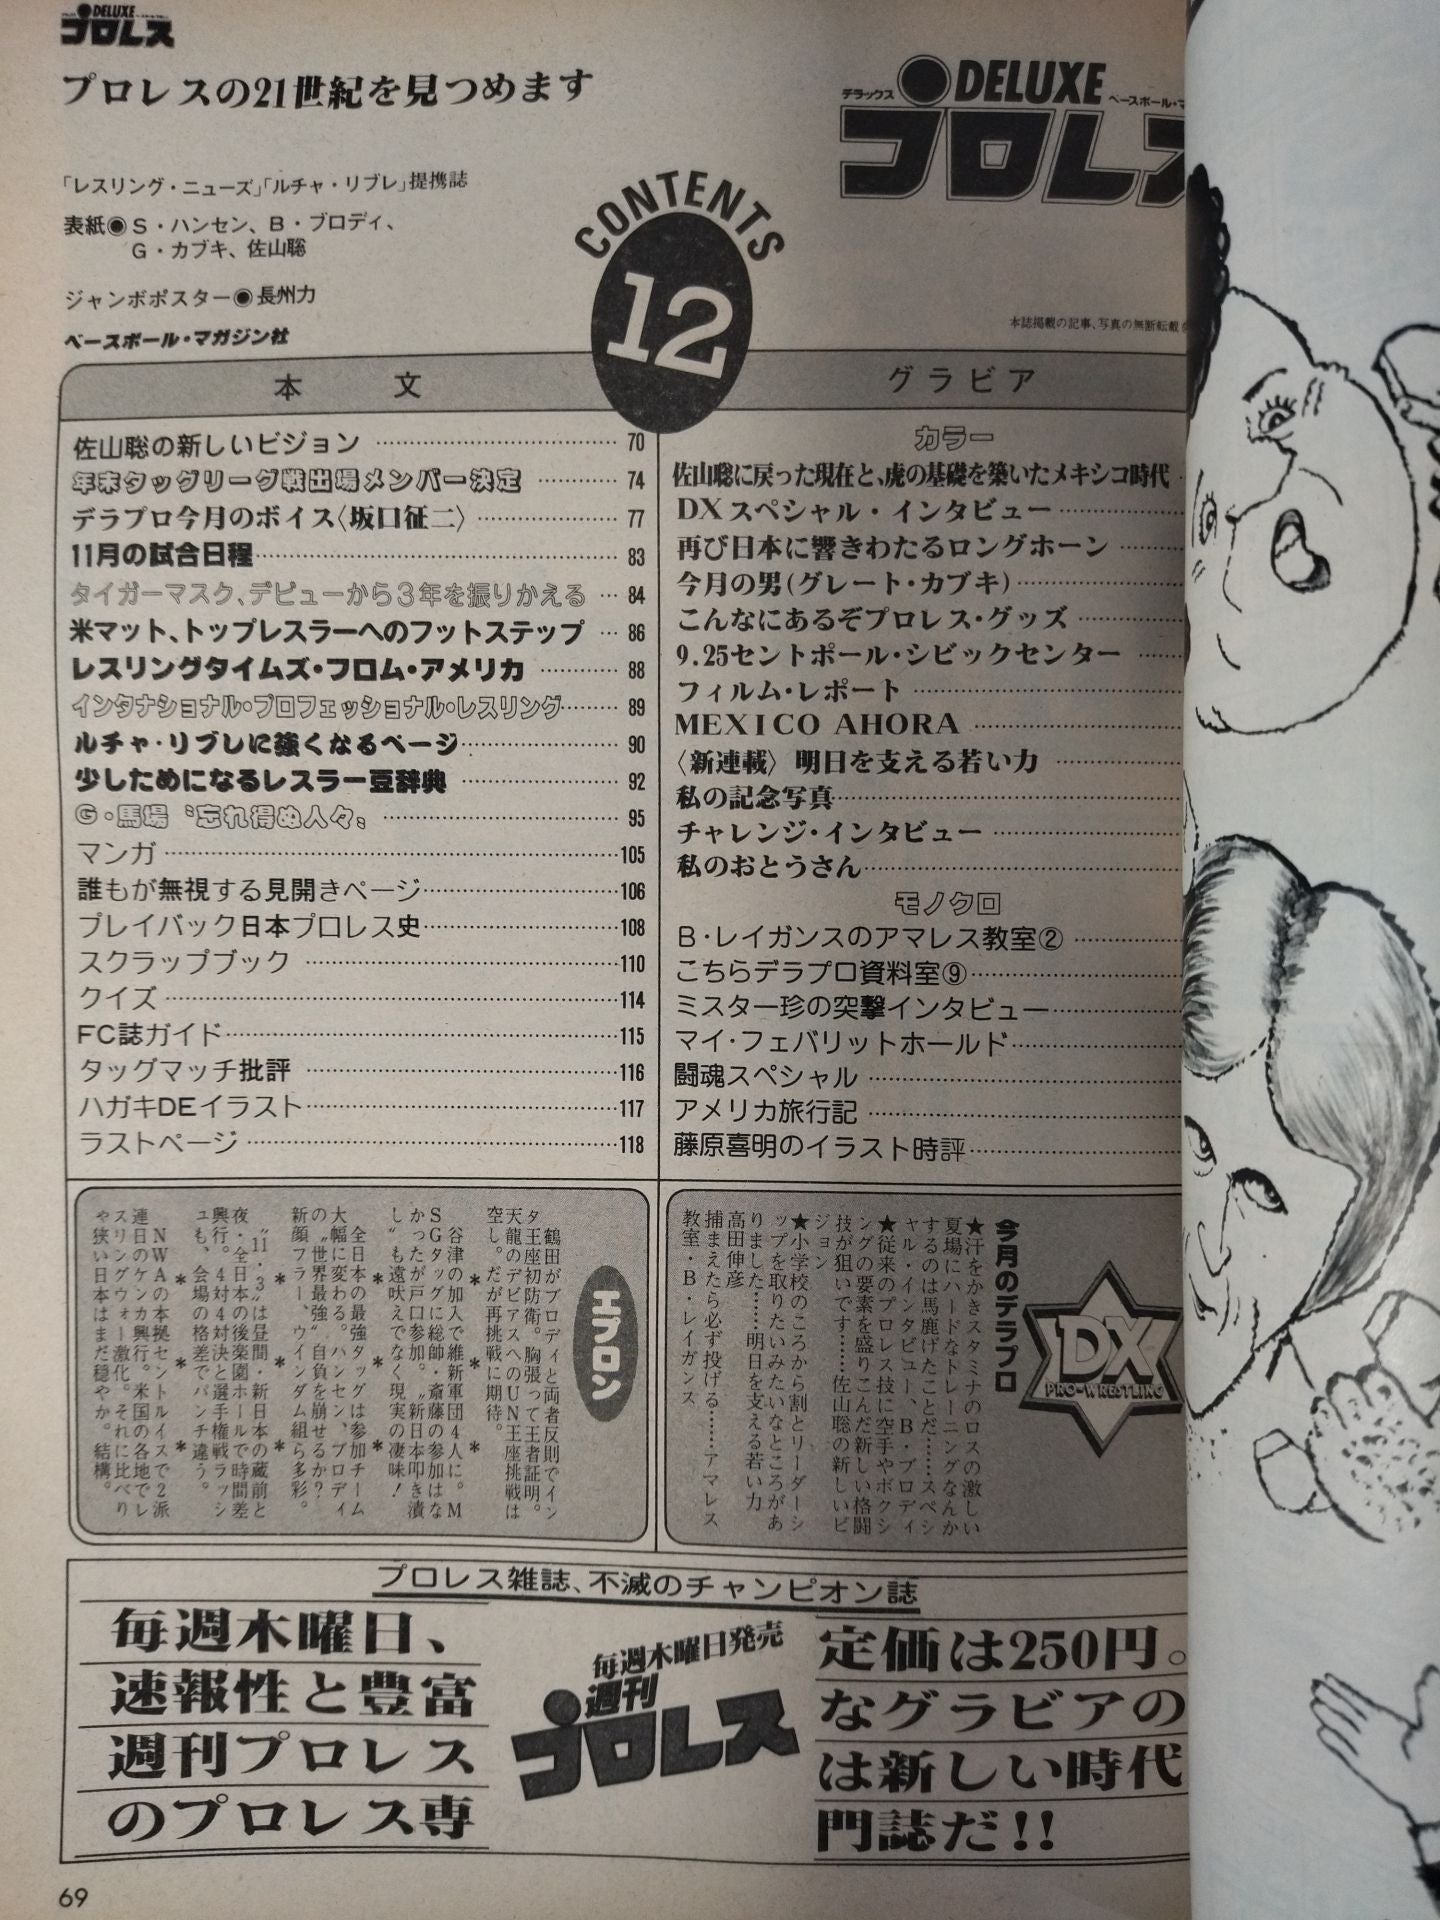 DELUXE
プロレス
プロレスの21世紀を見つめます
デラックス
DELUXE
ベースボール・マ
プロレス
「レスリング・ニューズ」「ルチャ・リブレ」提携誌
表紙◉S・ハンセン、B・ブロディ、
G・カブキ、佐山聡
ジャンボポスター◉長州力
ベースボール・マガジン社
CONTENTS
12
本誌掲載の記事、写真の無断転載
本文
佐山聡の新しいビジョン…………70
年末タッグリーグ戦出場メンバー決定…………74
デラプロ今月のボイス〈坂口征二〉…………77
11月の試合日程…………83
タイガーマスク、デビューから3年を振りかえる…84
米マット、トップレスラーへのフットステップ…86
レスリングタイムズ・フロム・アメリカ…………88
インタナショナル・プロフェッショナル・レスリング………89
ルチャ・リブレに強くなるページ…………90
少しためになるレスラー豆辞典…………92
G・馬場〝忘れ得ぬ人々〟…………95
マンガ…………105
誰もが無視する見開きページ…………106
プレイバック日本プロレス史…………108
スクラップブック…………110
クイズ…………114
FC誌ガイド…………115
タッグマッチ批評…………116
ハガキDEイラスト…………117
ラストページ…………118
グラビア
カラー
佐山聡に戻った現在と、虎の基礎を築いたメキシコ時代
DXスペシャル・インタビュー…………
再び日本に響きわたるロングホーン…………
今月の男(グレート・カブキ)…………
こんなにあるぞプロレス・グッズ…………
9.25セントポール・シビックセンター…………
フィルム・レポート…………
MEXICO AHORA…………
〈新連載〉明日を支える若い力…………
私の記念写真…………
チャレンジ・インタビュー…………
私のおとうさん…………
モノクロ
B・レイガンスのアマレス教室②…………
こちらデラプロ資料室⑨…………
ミスター珍の突撃インタビュー…………
マイ・フェバリットホールド…………
闘魂スペシャル…………
アメリカ旅行記…………
藤原喜明のイラスト時評…………
エプロン
鶴田がブロディと両者反則でイン
タ王座初防衛。胸張って王者証明。
天龍のデビアスへのUN王座挑戦は
空し。だが再挑戦に期待。
*
谷津の加入で維新軍団4人に。M
SGタッグに総帥・斎藤の参加はな
かったが戸口参加。〝新日本叩き潰
し〟も遠吠えでなく現実の凄味!
*
全日本の最強タッグは参加チーム
大幅に変わる。ハンセン、ブロディ
の〝世界最強〟自負を崩せるか?
新顔フラー、ウインダム組ら多彩。
*
〝11・3〟は昼間・新日本の蔵前と
夜・全日本の後楽園ホールで時間差
興行。4対4対決と選手権戦ラッシ
ュも、会場の格差でパンチ違う。
*
NWAの本拠セントルイスで2派
連日のケンカ興行。米国の各地でレ
スリングウォー激化。それに比べり
や狭い日本はまだ穏やか。結構。
今月のデラプロ
DX
PRO-WRESTLING
★汗をかきスタミナのロスの激しい
夏場にハードなトレーニングなんか
するのは馬鹿げたことだ……スペシ
ャル・インタビュー、B・ブロディ
★従来のプロレス技に空手やボクシ
ングの要素を盛りこんだ新しい格闘
技が狙いです……佐山聡の新しいビ
ジョン
★小学校のころから割とリーダーシ
ップを取りたいみたいなところがあ
りました……明日を支える若い力
高田伸彦
捕まえたら必ず投げる……アマレス
教室・B・レイガンス
プロレス雑誌、不滅のチャンピオン誌
毎週木曜日、
速報性と豊富
週刊プロレス
のプロレス専
毎週木曜日発売
週刊
プロレス
定価は250円。
なグラビアの
は新しい時代
門誌だ!!
69